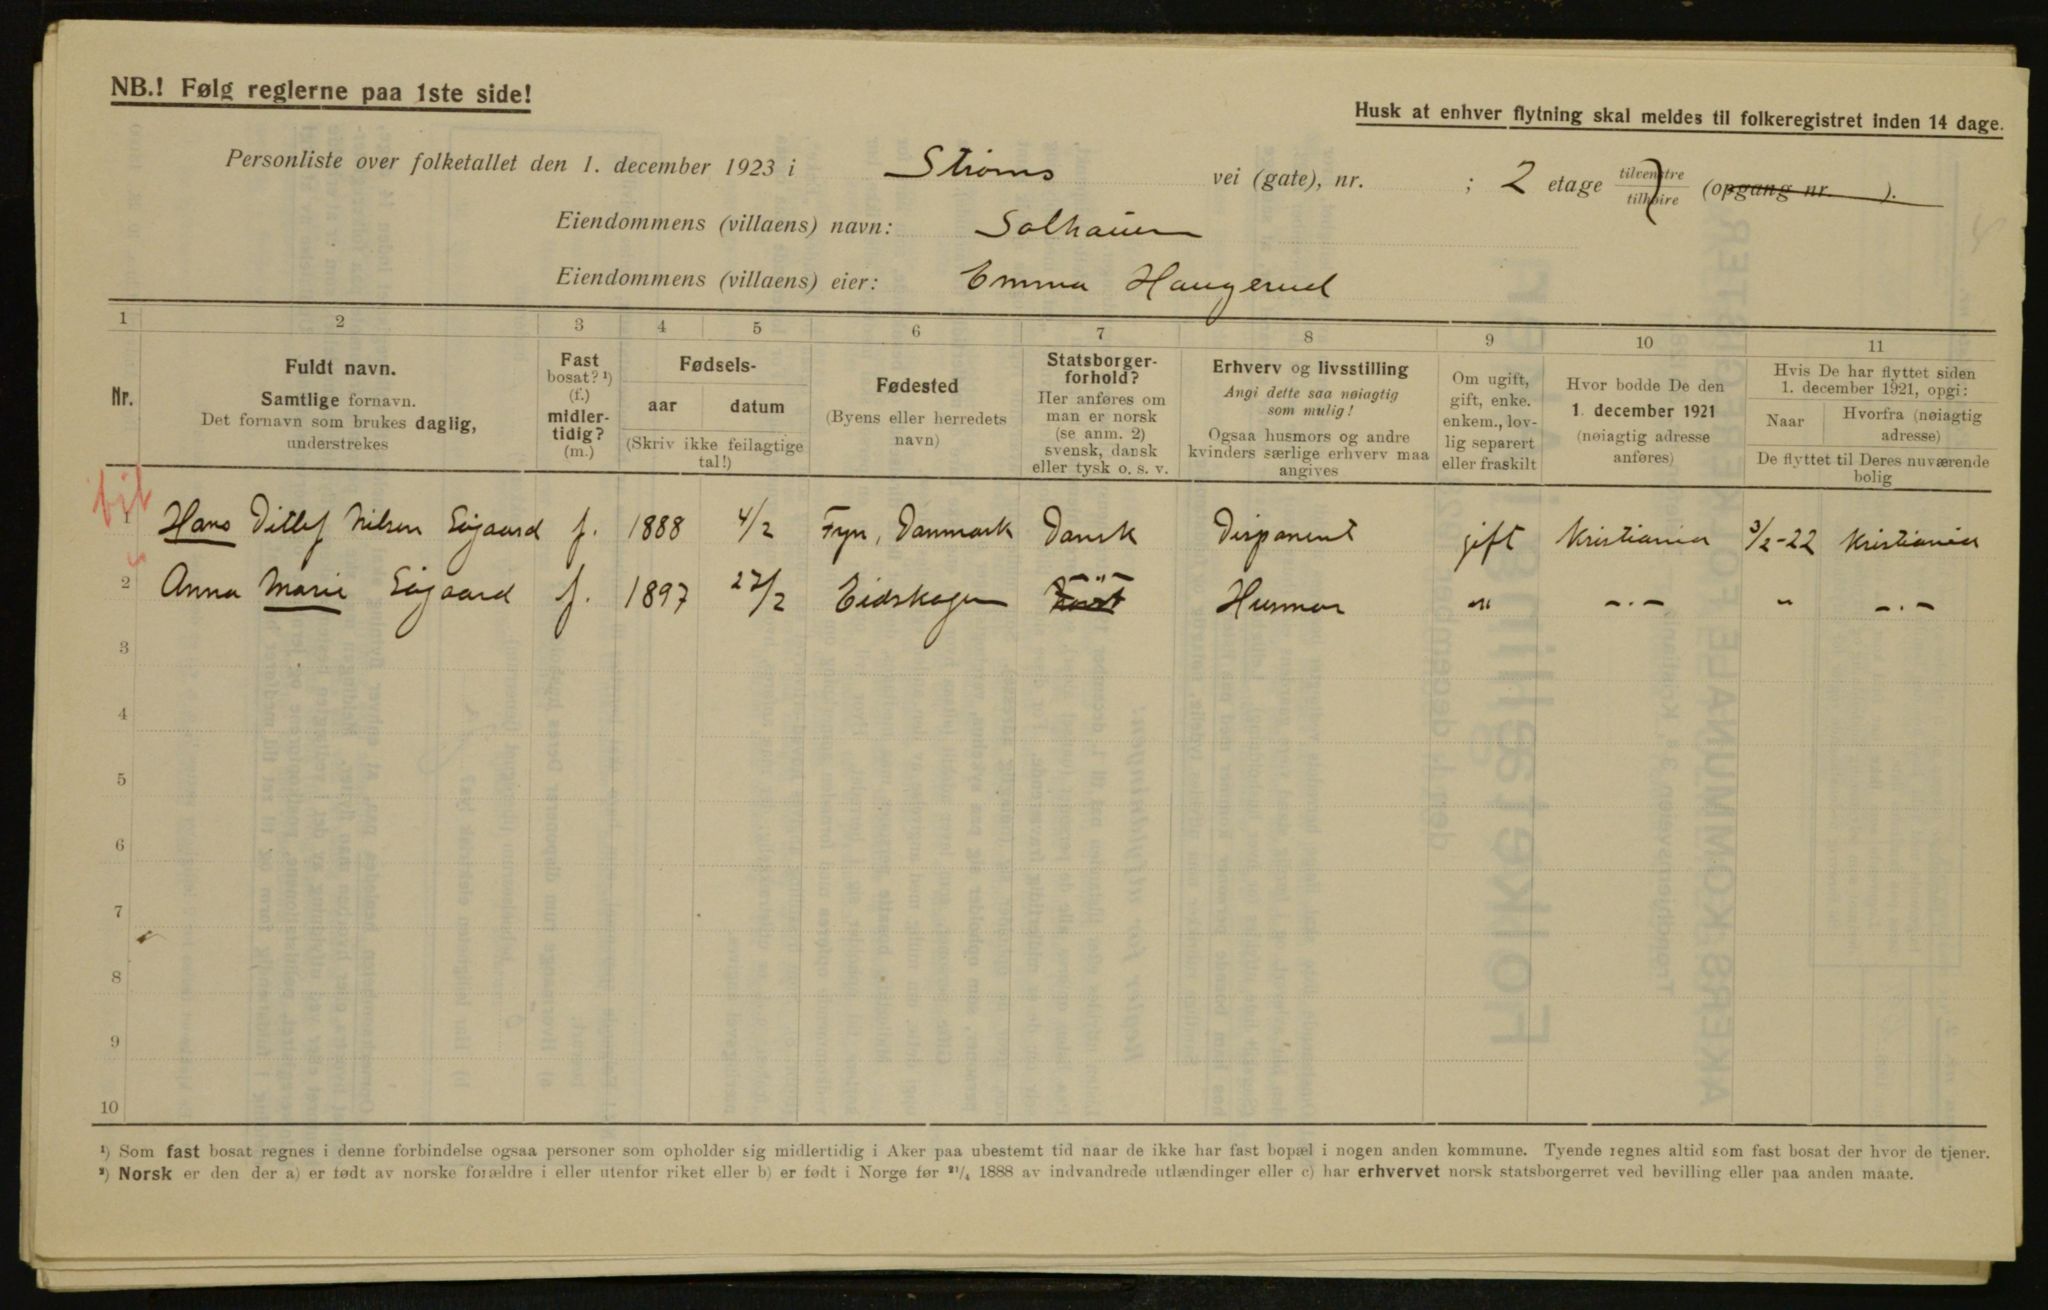 NB.! Følg reglerne paa 1ste side!
Husk at enhver flytning skal meldes til folkeregistret inden 14 dage.
Personliste over folketallet den 1. december 1923 i Strøms vei (gate), nr. ; 2 etage tilvenstre tilhøire (opgang nr. ).
Eiendommens (villaens) navn: Solhaug
Eiendommens (villaens) eier: Emma Haugerud
1 2 3 4 5 6 7 8 9 10 11
Nr.
Fuldt navn.
Samtlige fornavn.
Det fornavn som brukes daglig,
understrekes
Fast
bosat? ¹)
(f.)
midler-
tidig?
(m.)
Fødsels-
aar datum
(Skriv ikke feilagtige
tal!)
Fødested
(Byens eller herredets
navn)
Statsborger-
forhold?
Her anføres om
man er norsk
(se anm. 2)
svensk, dansk
eller tysk o. s. v.
Erhverv og livsstilling
Angi dette saa nøiagtig
som mulig!
Ogsaa husmors og andre
kvinders særlige erhverv maa
angives
Om ugift,
gift, enke.
enkem., lov-
lig separert
eller fraskilt
Hvor bodde De den
1. december 1921
(nøiagtig adresse
anføres)
Hvis De har flyttet siden
1. december 1921, opgi:
Naar
Hvorfra (nøiagtig
adresse)
De flyttet til Deres nuværende
bolig
1 Hans Ditlef Nilsen f. 1888 4/2 Fyn, Danmark Dansk Disponent gift Kristiania 3/2-22 Kristiania
2 Anna Marie f. 1897 27/2 Eidskogen -"- Husmor " -.- " -.-
3
4
5
6
7
8
9
10
¹) Som fast bosat regnes i denne forbindelse ogsaa personer som opholder sig midlertidig i Aker paa ubestemt tid naar de ikke har fast bopæl i nogen anden kommune. Tyende regnes altid som fast bosat der hvor de tjener.
²) Norsk er den der a) er født av norske forældre i eller utenfor riket eller b) er født i Norge før ²¹/₄ 1888 av indvandrede utlændinger eller c) har erhvervet norsk statsborgerret ved bevilling eller paa anden maate.